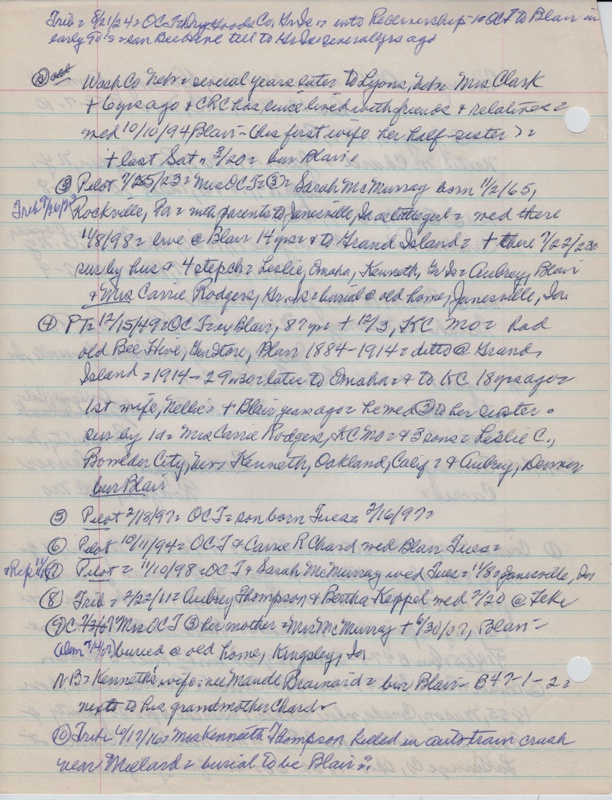 Trib = 8/21/24 = OCT Dry Goods Co, Gr Is = into Receivership = OCT to Blair in
early 90's = ran Bee Hive till to Gr Is = general yrs ago
② Wash Co Nebr = several years later to Lyons, Nebr = Mrs Clark
+ 6 yrs ago & CRC has since lived with friends & relatives =
med 10/10/94 Blair - (his first wife her half-sister) =
+ last Sat = 3/20 = bur Blair.
③ Pilot 7/25/23 = Mrs OCT = ③ = Sarah McMurray born 11/2/65,
Trib 7/26/23 Rockville, Pa = with parents to Janesville, Ia as little girl = med there
11/8/98 = live @ Blair 14 yrs = & to Grand Island = + there 7/22/23 =
sur by hus & 4 step ch = Leslie, Omaha, Kenneth, Gr Is = Aubrey, Blair
& Mrs Carrie Rodgers, Gr. Is = burial @ old home, Janesville, Ia
④ PT = 12/15/49 = OC Troy Blair, 87 yrs + 12/3, KC MO = had
old Bee Hive, Gen Store, Blair 1884-1914 = ditto @ Grand
Island = 1914-29 or 30 = later to Omaha = & to KC 18 yrs ago =
1st wife, Nellie = + Blair years ago = he med ② her sister =
sur by 1 d = Mrs Carrie Rodgers, KC Mo = & 3 sons = Leslie C.,
Boulder City, Nev Kenneth, Oakland, Calif = & Aubrey, Denver
bur Blair
⑤ Pilot 2/18/97 = OCT = son born Tues = 2/16/97 =
⑥ Pilot 10/11/94 = OCT & Carrie R Chard med Blair Tues =
+ Rep ⑦ Pilot = 11/10/98 = OCT & Sarah McMurray wed Tues = 11/8 = Janesville, Ia
⑧ Trib = 2/22/11 = Aubrey Thompson & Bertha Keppel med 2/20 @ Teka
⑨ Mrs OCT ③ her mother = Mrs McMurray + 6/30/07, Blair -
buried @ old home, Kingsley, Ia
NB = Kenneth's wife = nee Maude Brainard = bur Blair - B47-1-2 =
next to his grandmother Chard
⑩ Trib 6/17/60 = Mrs Kenneth Thompson killed in auto train crash
near Millard = burial to be Blair